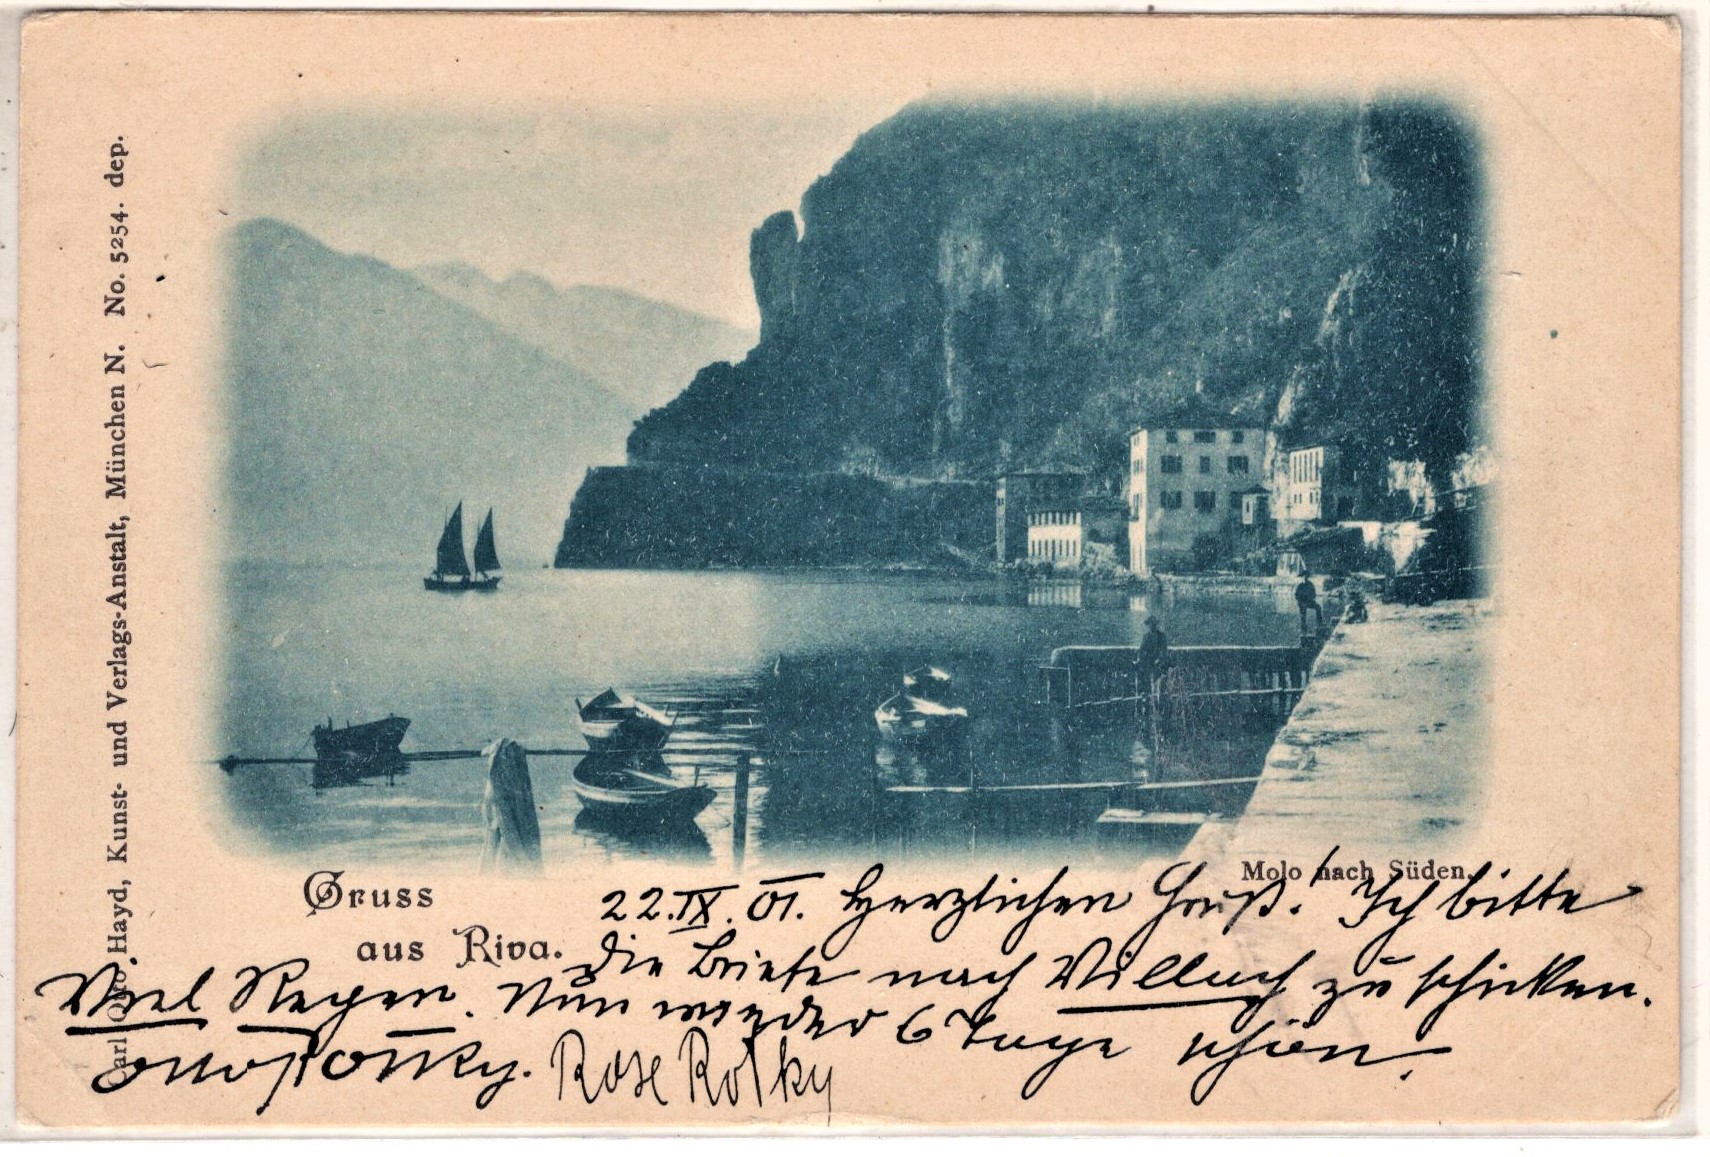 Carl Otto Hayd, Kunst- und Verlags-Anstalt, München N. No. 5254. dep.
Molo nach Süden.
Gruss
aus Riva.
22. IX. 01. Herzlichen Gruß! Ich bitte
die Briefe nach Villach zu schicken.
Viel Regen. Nun wieder 6 Tage schön.
Rose Rotky